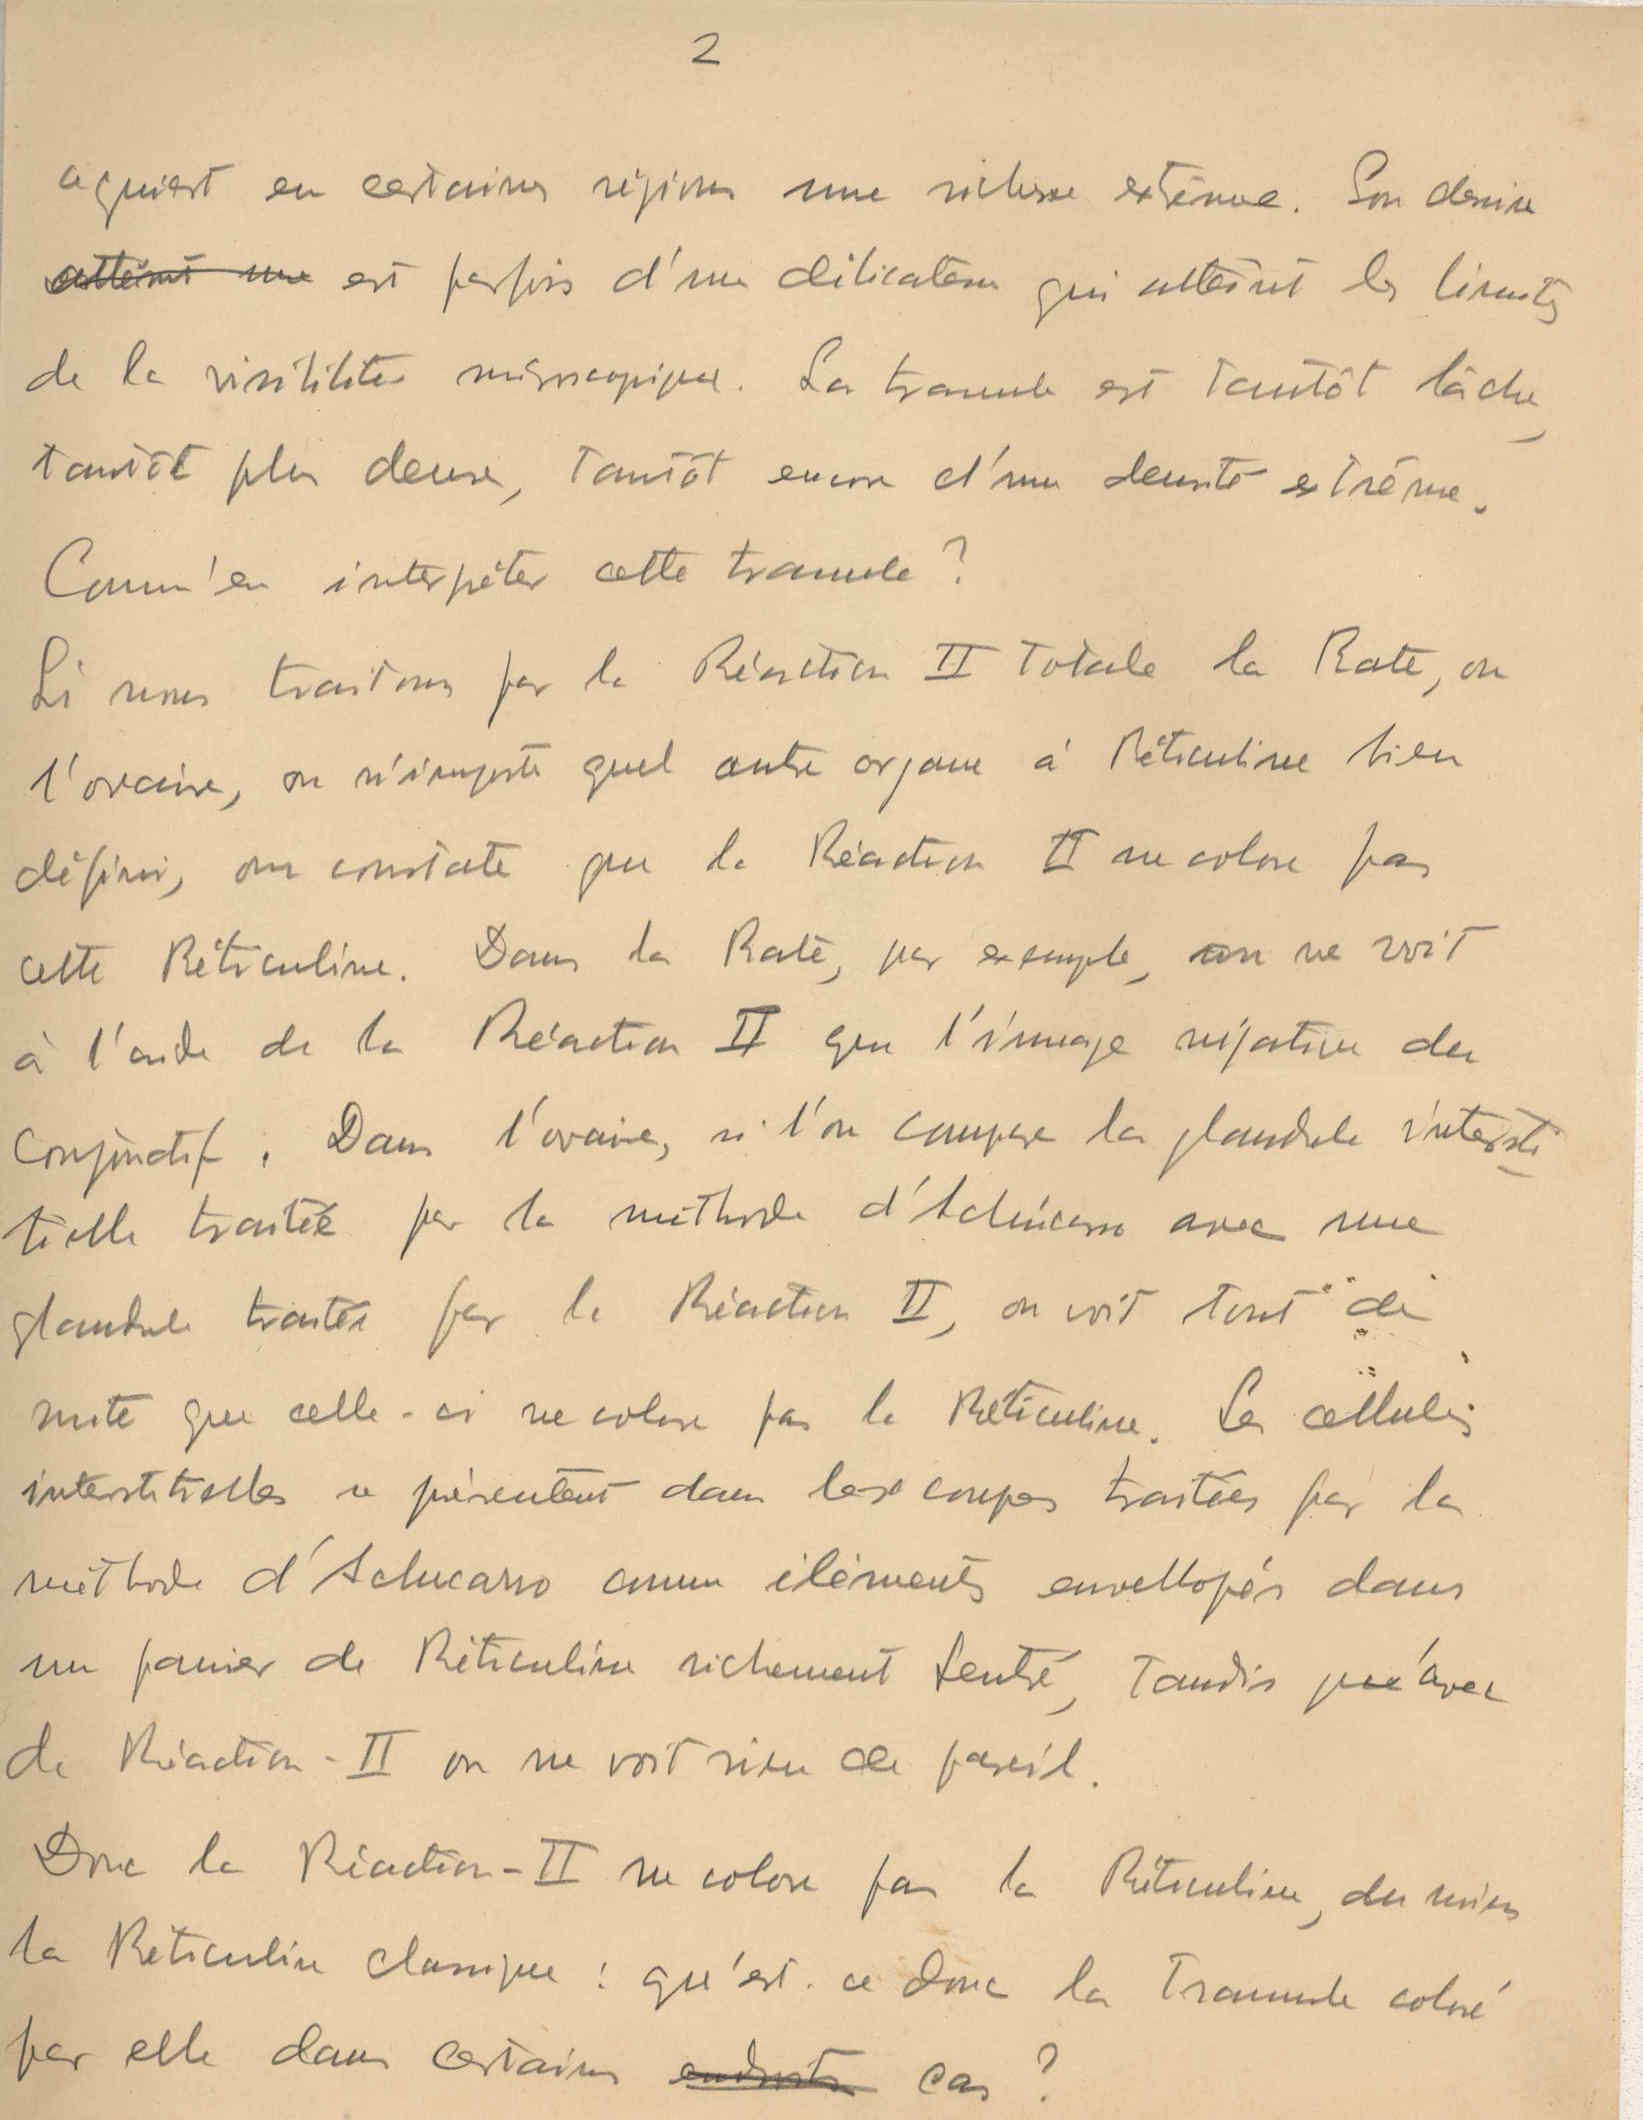 2
aquiert en certaines régions une richesse extrême. Son dessin
atteint une est parfois d'une délicatesse qui atteint les limites
de la visibilité microscopique. La tramule est tantôt lâche,
tantôt plus dense, tantôt encore d'une densité extrême.
Comm'en interpéter cette tramule?
Si nous traitons par la Réaction II Totale la Rate, ou
l'ovaire, ou n'importe quel autre organe à Réticuline bien
défini, on constate que la Réaction II ne colore pas
cette Réticuline. Dans la Rate, par exemple, on ne voit
à l'aide de la Réaction II que l'image négative du
Conjonctif. Dans l'ovaire, si l'on compare la glandule intersti
tielle traitée par la méthode d'Achúcarro avec une
glandule traitée par la Réaction II, on voit tout de
suite que celle-ci ne colore pas la Réticuline. Les cellules
interstitielles se présentent dans les coupes traitées par la
méthode d'Achucarro comme éléments envellopés dans
un panier de Réticuline richement feutré, Tandis que'avec
la Réaction-II on ne voit rien de pareil.
Donc la Réaction-II ne colore pas la Réticuline, du moins
la Réticuline classique: qu'est-ce donc la Tramule coloré
par elle dans certains endroits cas?